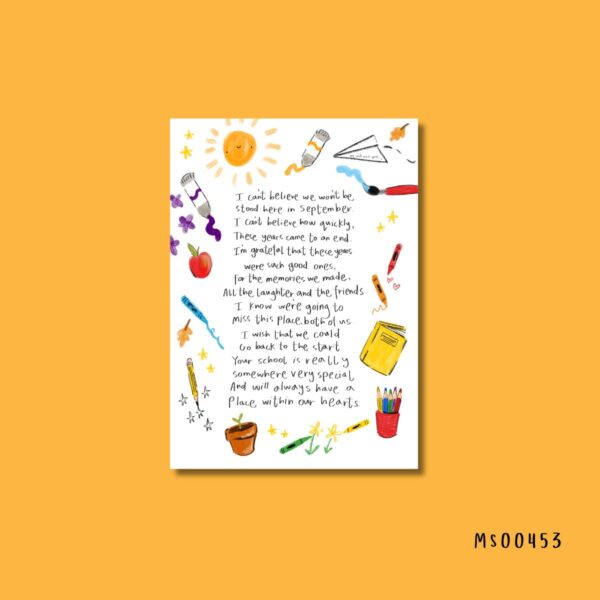 I can't believe we won't be
stood here in September.
I can't believe how quickly,
These years came to an end.
I'm grateful that these years
were such good ones,
for the memories we made,
All the laughter and the friends
I know were going to
miss this place, both of us
I wish that we could
Go back to the start
Your school is really
somewhere very special
And will always have a
Place within our hearts.
MS00453